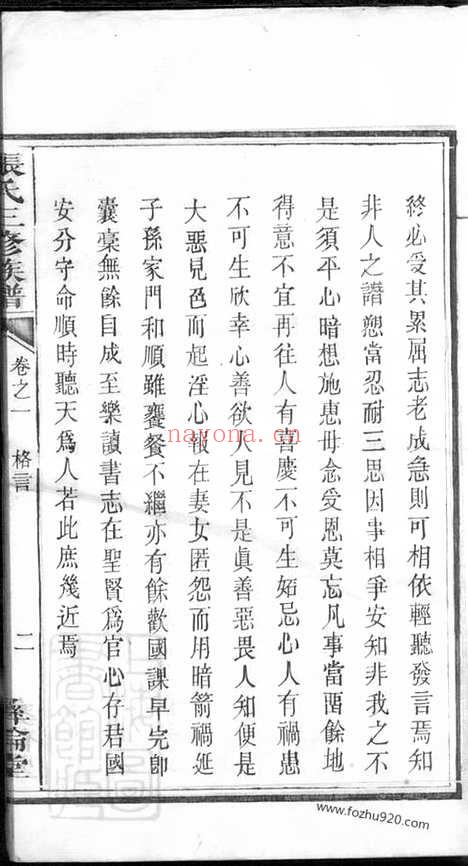 終必受其累屈志老成急則可相依輕聽發言焉知
非人之譖愬當忍耐三思因事相爭安知非我之不
是須平心暗想施惠毋念受恩莫忘凡事當畱餘地
得意不宜再往人有喜慶不可生妬忌心人有禍患
不可生欣幸心善欲人見不是眞善惡畏人知便是
大惡見色而起淫心報在妻女匿怨而用暗箭禍延
子孫家門和順雖饔餐不繼亦有餘歡國課早完卽
囊槖無餘自成至樂讀書志在聖賢爲官心存君國
安分守命順時聽天爲人若此庶幾近焉
張氏三修族譜
卷之一
格言
二
nayona.cn
www.fozhu920.com